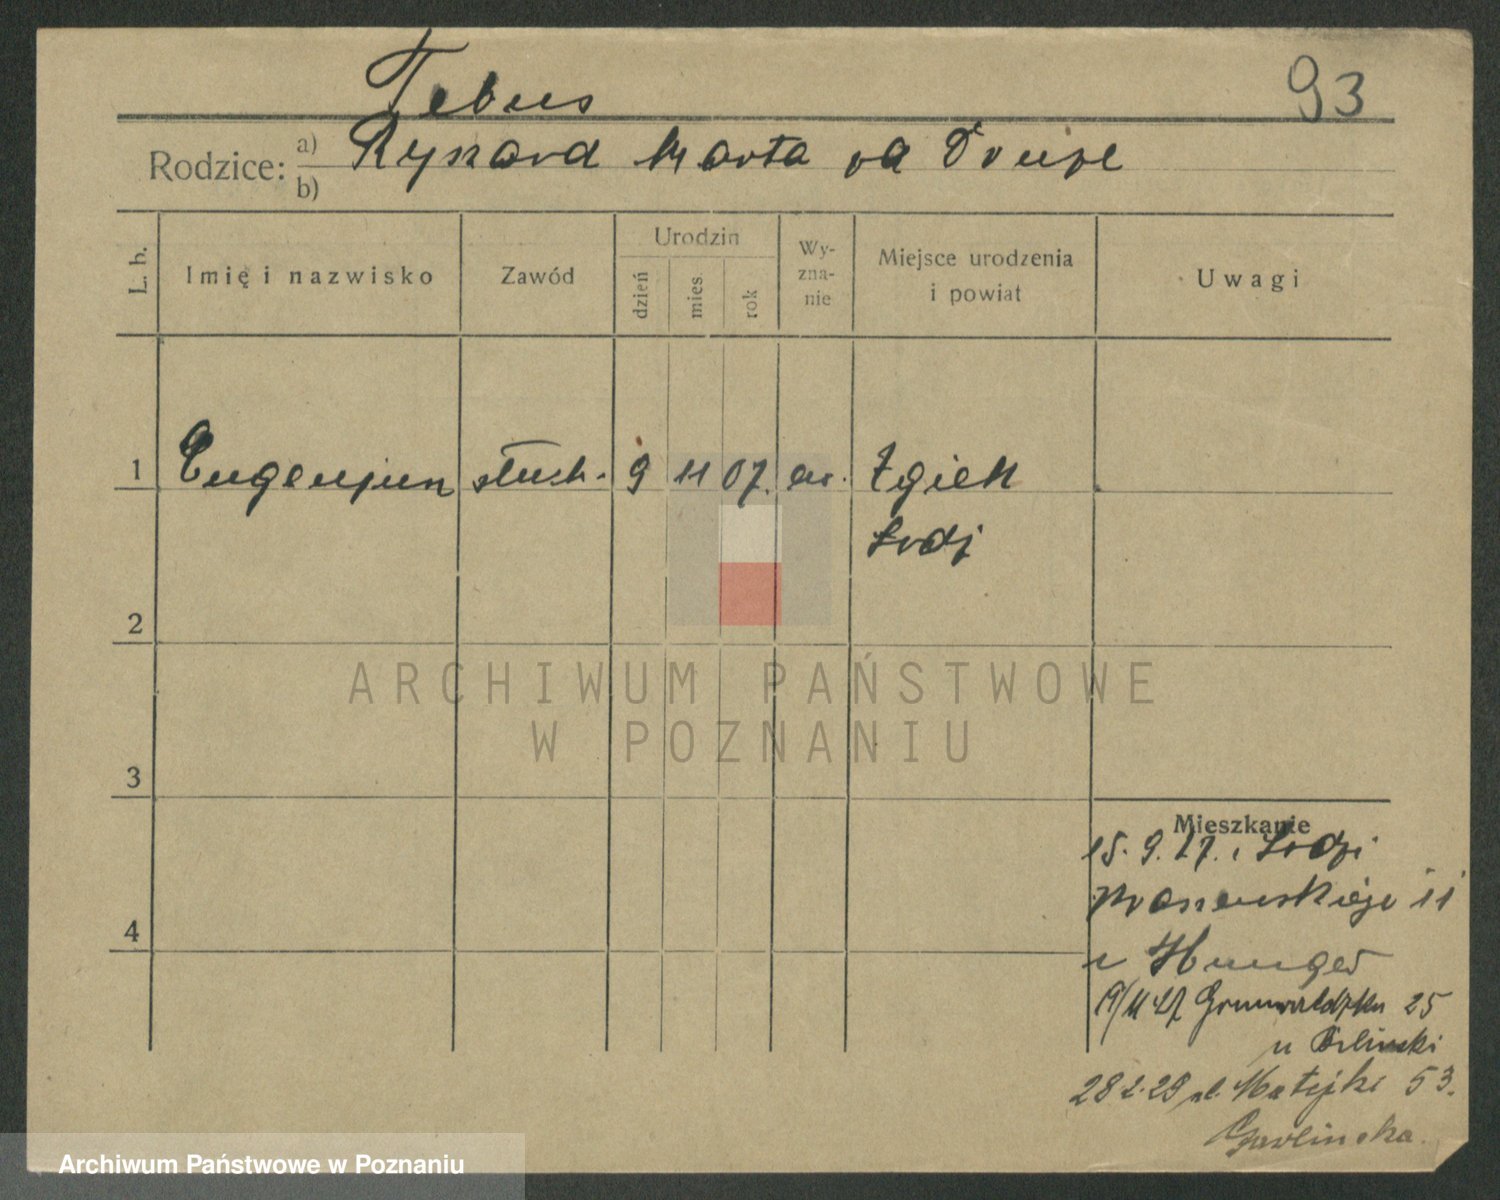 Tebus
93
Rodzice: a) Ryszard Marta
b)
L. b.
Imię i nazwisko
Zawód
Urodzin
dzień
mies.
rok
Wy-
zna-
nie
Miejsce urodzenia
i powiat
Uwagi
1 Eugenjusz słuch. 9 11 07. ew. Zgierz
Łódź
2
3
4
Mieszkanie
15. 9. 27. z Łodzi
11
u
19/11 27 Grunwaldzka 25
u
28 2. 29 ul. Matejki 53.
ARCHIWUM PAŃSTWOWE
W POZNANIU
Archiwum Państwowe w Poznaniu